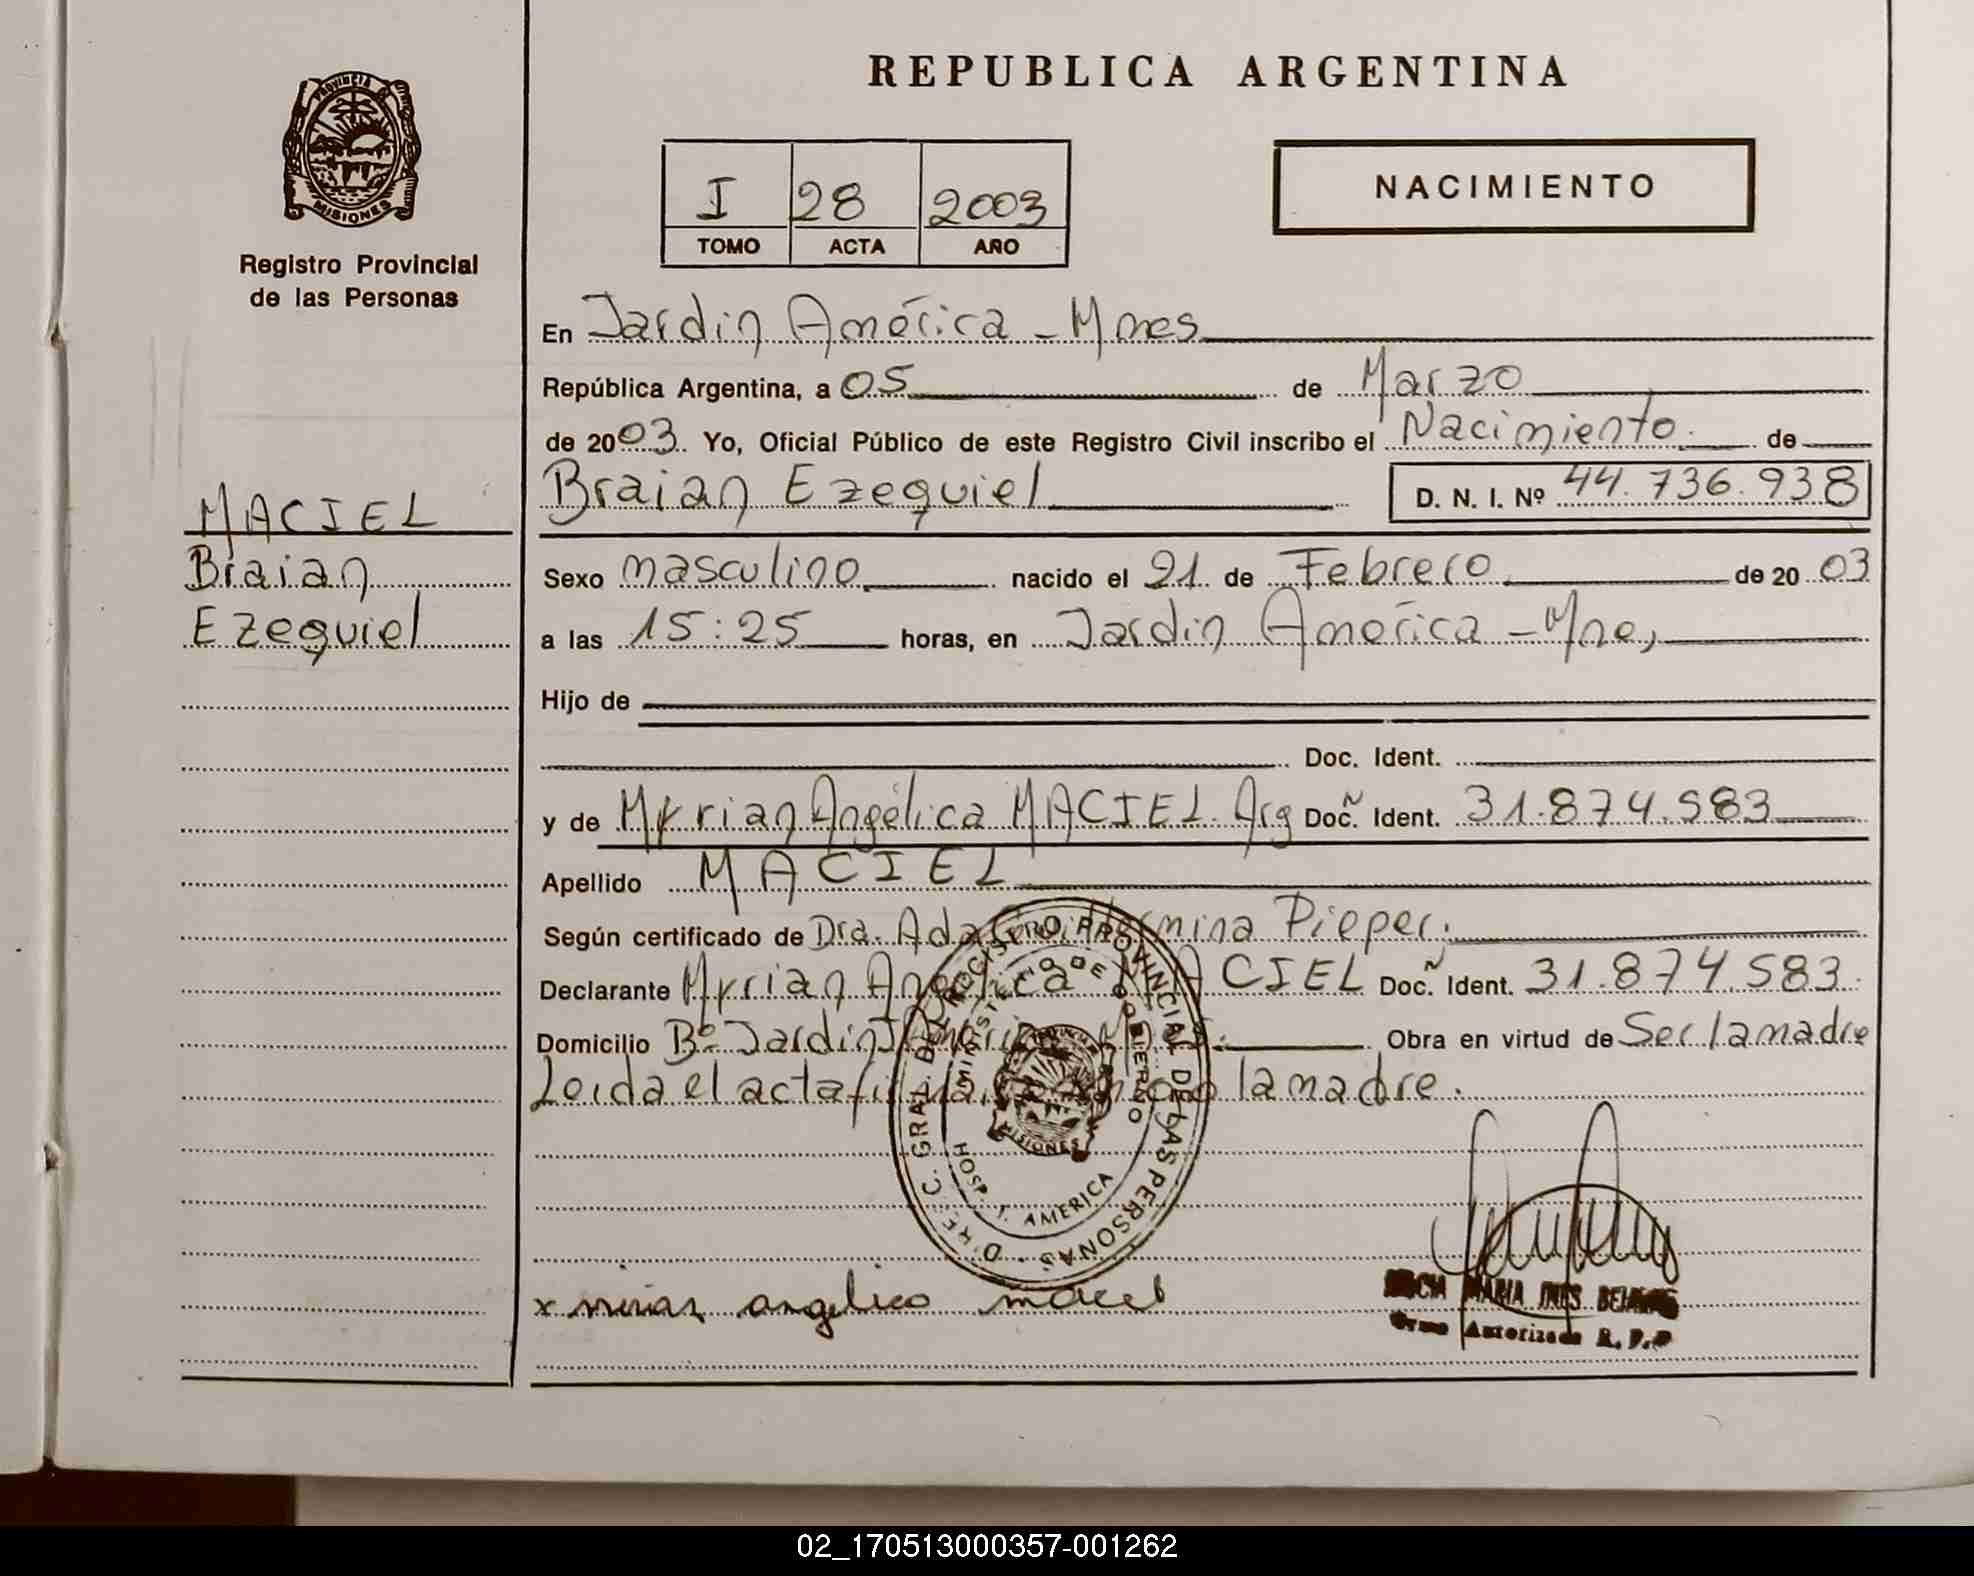 REPUBLICA ARGENTINA
PROVINCIA DE
MISIONES
Registro Provincial
de las Personas
NACIMIENTO
I 28 2003
TOMO ACTA AÑO
En Jardin América - Mnes
República Argentina, a 05 de Marzo
de 2003. Yo, Oficial Público de este Registro Civil inscribo el Nacimiento de
Braian Ezequiel D. N. I. Nº 44.736.938
MACIEL
Braian
Ezequiel
Sexo masculino nacido el 21 de Febrero de 2003
a las 15:25 horas, en Jardin América - Mne,
Hijo de
Doc. Ident.
y de Myrian Angélica MACIEL. Arg Doc. Ident. 31.874.583
Apellido MACIEL
Según certificado de Dra. Ada Pieper.
Declarante Myrian Angélica MACIEL Doc. Ident. 31.874.583.
Domicilio Bº Jardin Obra en virtud de Ser la madre
Leida el acta la madre.
DIREC. GRAL. DEL REGISTRO PROVINCIAL DE LAS PERSONAS
MINISTERIO DE GOBIERNO
MISIONES
HOSP. J. AMERICA
x angelica maciel
MARIA INES
Autorizada R. P. P
02_170513000357-001262